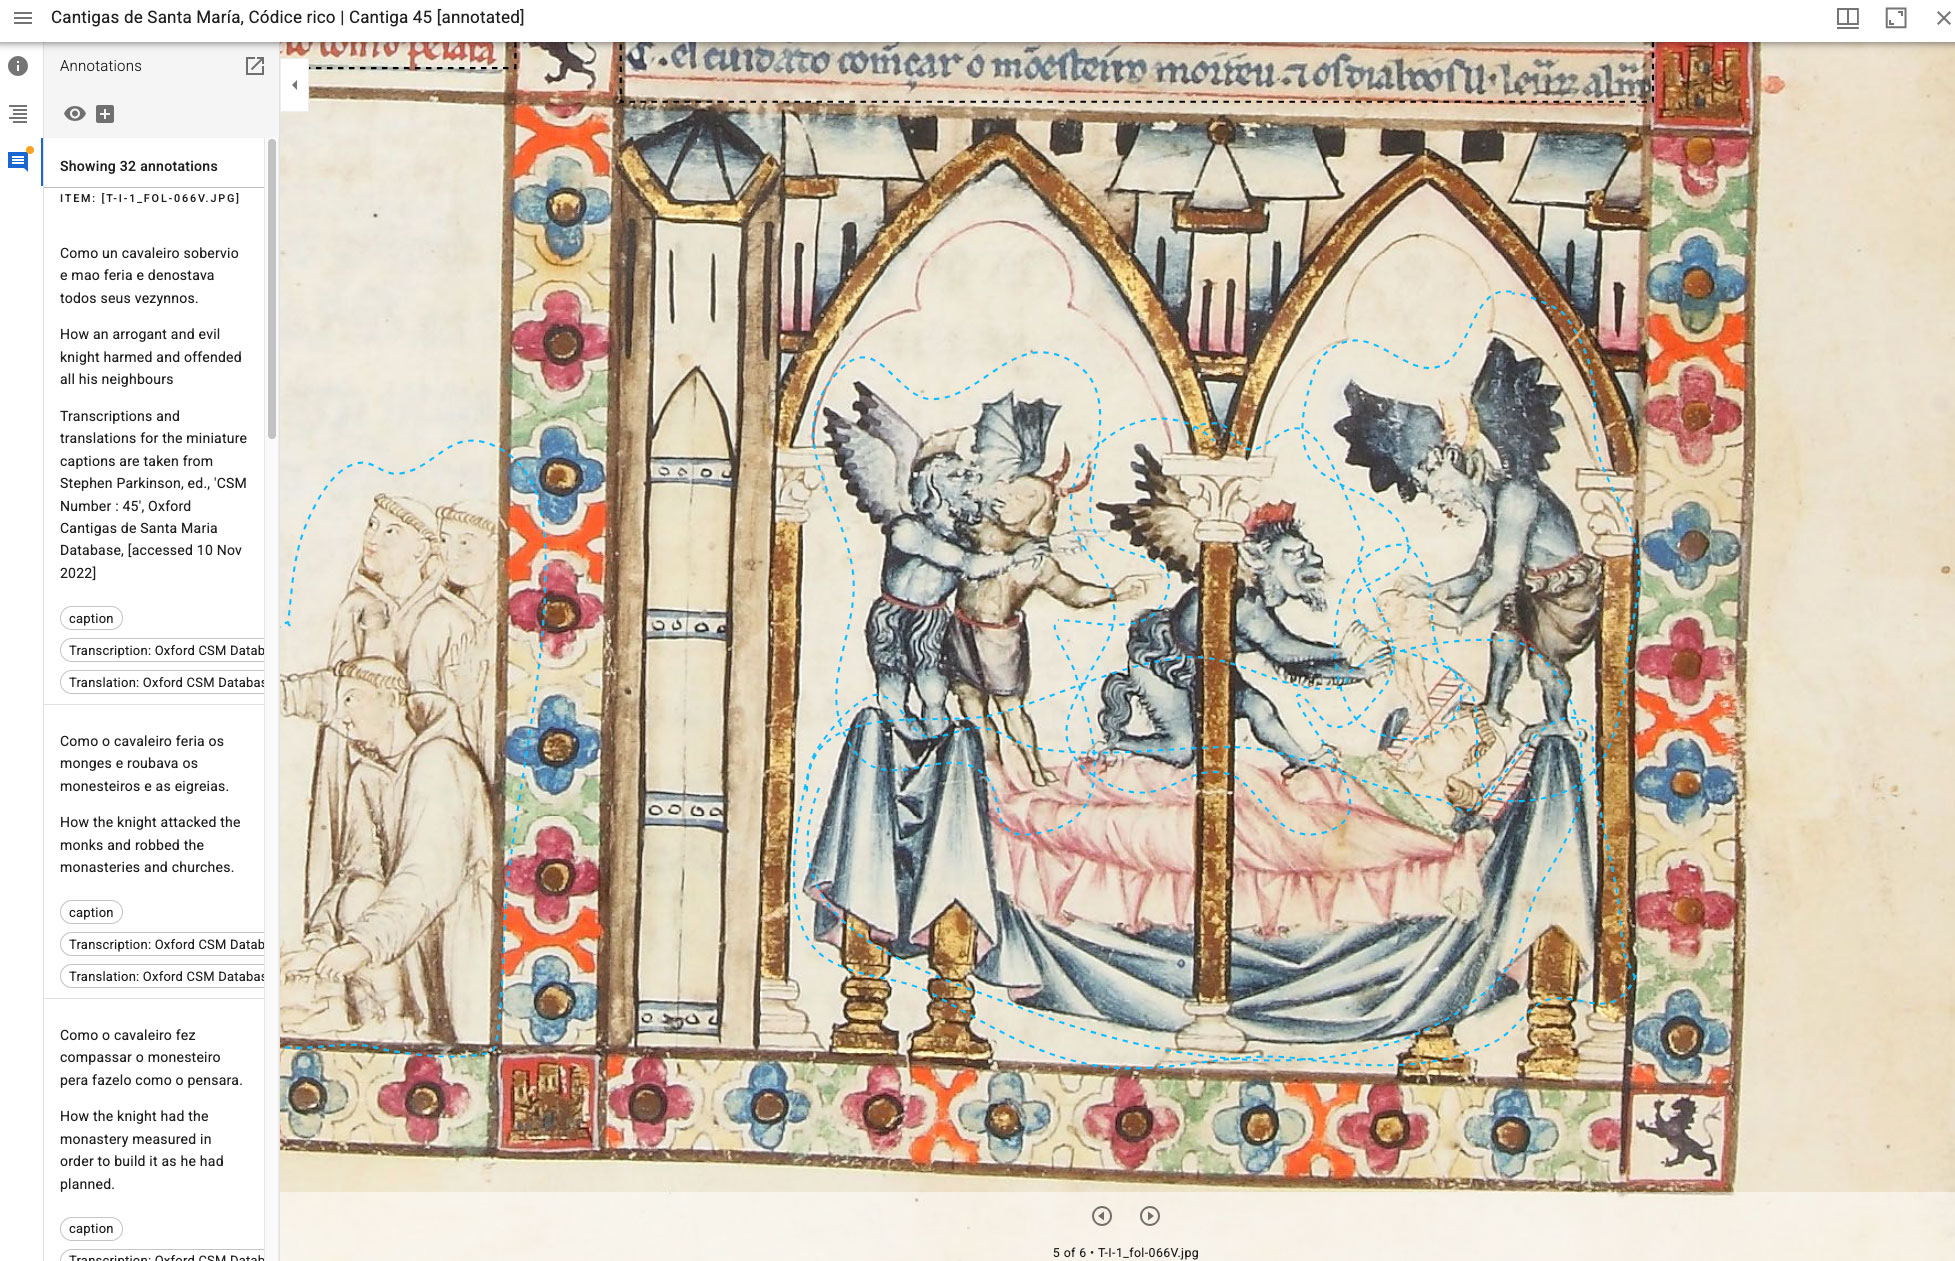 Cantigas de Santa María, Códice rico | Cantiga 45 [annotated]
Annotations
Showing 32 annotations
ITEM: [T-I-1_FOL-066V.JPG]
Como un cavaleiro sobervio
e mao feria e denostava
todos seus vezynnos.
How an arrogant and evil
knight harmed and offended
all his neighbours
Transcriptions and
translations for the miniature
captions are taken from
Stephen Parkinson, ed., 'CSM
Number : 45', Oxford
Cantigas de Santa Maria
Database, [accessed 10 Nov
2022]
caption
Transcription: Oxford CSM Datab
Translation: Oxford CSM Databas
Como o cavaleiro feria os
monges e roubava os
monesteiros e as eigreias.
How the knight attacked the
monks and robbed the
monasteries and churches.
caption
Transcription: Oxford CSM Datab
Translation: Oxford CSM Databas
Como o cavaleiro fez
compassar o monesteiro
pera fazelo como o pensara.
How the knight had the
monastery measured in
order to build it as he had
planned.
caption
Transcription: Oxford CSM Datab
como pensara
el cuidato começar o mõesteiro morreu
5 of 6 • T-I-1_fol-066V.jpg